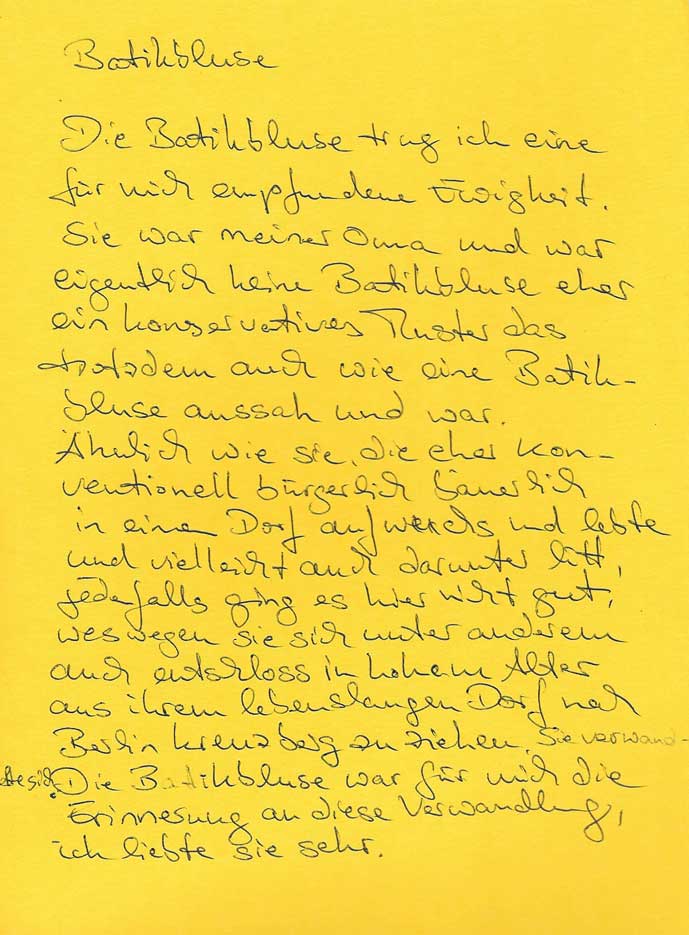 Batikbluse
Die Batikbluse trug ich eine
für mich empfundene Ewigkeit.
Sie war meiner Oma und war
eigentlich keine Batikbluse eher
ein konservatives Muster das
trotzdem auch wie eine Batik-
bluse aussah und war.
Ähnlich wie sie, die eher kon-
ventionell bürgerlich bäuerlich
in einem Dorf aufwuchs und lebte
und vielleicht auch darunter litt,
jedenfalls ging es hier nicht gut,
weswegen sie sich unter anderem
auch entschloss in hohem Alter
aus ihrem lebenslangen Dorf nach
Berlin Kreuzberg zu ziehen. Sie verwand-
elte sich. Die Batikbluse war für mich die
Erinnerung an diese Verwandlung,
ich liebte sie sehr.